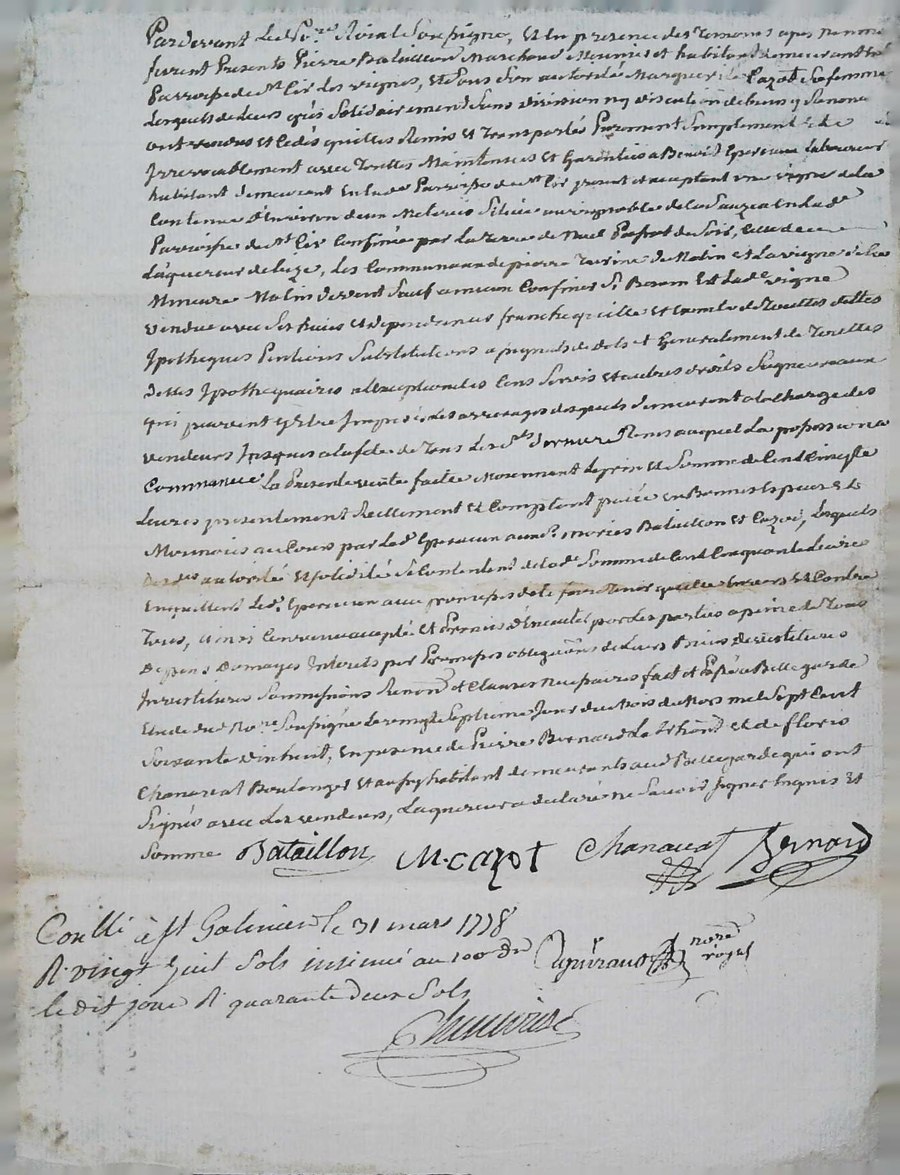 Pardevant Le No.re Roial Soussigné, et en presence des Temoins apres nommé
furent Presents Pierre Bataillon Marchand Meunier et habitant demeurant
Parroisse de St Cir Les vignes, et sous son autorité Marguerite Cazot sa femme
Lesquels de leurs grés solidairement sans division ny discution de biens y Renonc
ont vendus et cedés quittes Remis et Transportés Purement Simplement et
Irrevocablement avec Toutes Maintenues et Garenties a Benoit Eperceux laboureur
habitant demeurant en lad. Parroisse de St Cir present et acceptant une vigne de la
Contenue d'Environ deux Meterée Située au vignoble de la en lad.e
Parroisse de St Cir Confinée par La Terre de de soir, celle de
L'aquereur de bize, Les Communaux de pierre de Matin et La vigne de
Mineure Matin devent Sauf a mieux Confiner Sy Besoin est Lad.e vigne
vendue avec Ses aises et dependences franche quitte et exempte de Touttes dettes
Ipotheques Pentions Substitutions apignats de dots et Generalement de Touttes
dettes Ipothequaires a l'exception des Cens Servis et autres droits Seigneuriaux
qui peuvent y Etre Imposés les arrerages desquels demeurent a la charge des
vendeurs Jusques a la fete de Tous Les S.ts derniere auquel La possession a
Commancé La Presente vente faite Moienant le prix et Somme de Cent Cinq.te
Livres presentement Reellement et Comptant paiée en Bonnes Especes et de
Monnoies au Cours par Led. Eperceux auxd. mariés Bataillon et Cazot, Lesquels
des.des autorité et solidité Se Contentent de lad. Somme de Cent Cinquante Livre
En quittent Led. Eperceux avec promesses de le faire Tenir quitte Envers et Contre
Tous, ainsi Convenu accepté et Promis d'Executer par les parties a peine de Tous
Depens Domages Interets par Promesses obliga.ons de Leurs Biens
Investitures Soumissions Renon.on et Clauses Necessaires fait et Passé a Bellegarde
Etude dud. No.re Soussigné Le vingt Septieme Jour du Mois de Mars mil Sept Cent
Soixante dix huit, En presence de Pierre Bernard et de floris
Chanavat Boulanger habitant demeurants aud. Bellegarde qui ont
Signés avec Les vendeurs, Laquereur a declaré ne Savoir Signer Enquis et
Sommé Bataillon M. cazot Chanavat Bernard
Conllé à st Galmier le 31 mars 1778
R. vingt huit Sols insinué au 100 dr
le dit jour R. quarante deux Sols
no.re royal